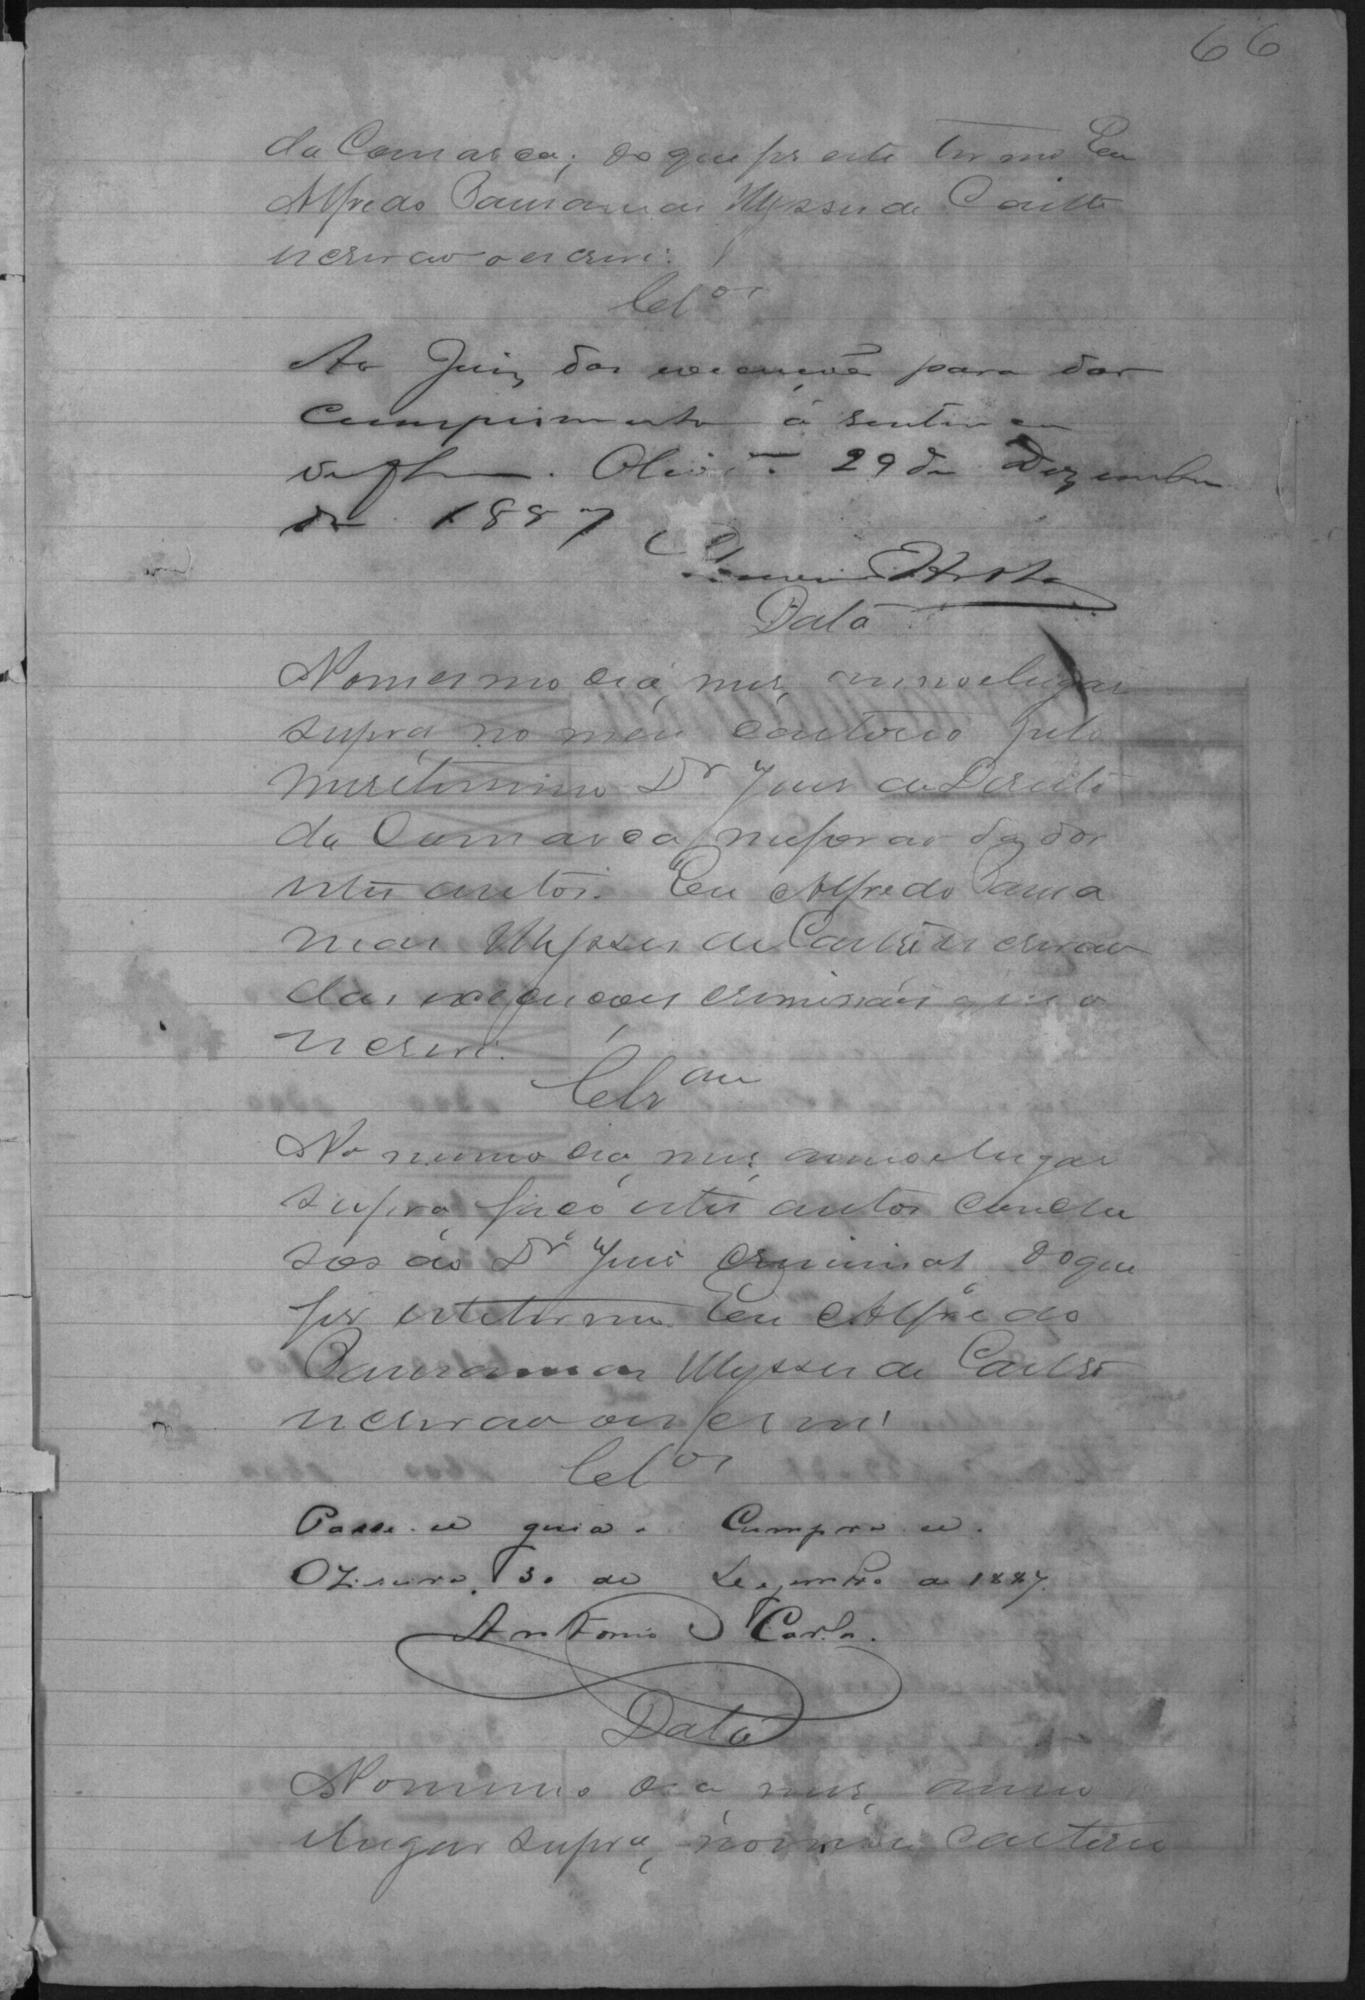 66
da Comarca; do que fiz este termo Eu
Alfredo Ulysses de Castro
escrivão o escrevi.
Cl.os
Ao Juiz das execuções para dar
cumprimento á sentença
Olivr.a 29 de Dezembro
de 1887
Data
No mesmo dia, mez, anno e lugar
supra, no meu cartorio pelo
meritissimo Dr Juiz de Direito
da Comarca, me forão dados
estes autos. Eu Alfredo
Ulysses de Castro escrivão
das execuções criminaes que o
escrevi.
Clsão
No mesmo dia, mez, anno e lugar
supra, faço estes autos conclu
sos ao Dr. Juiz Criminal, do que
fiz este termo. Eu Alfredo
Ulysses de Castro
escrivão o escrevi
Cl.os
Passe-se guia. Cumpra-se.
Oliveira, 30 de Dezembro de 1887.
Antonio Carlos.
Data
No mesmo dia, mez, anno
e lugar supra, no meu cartorio